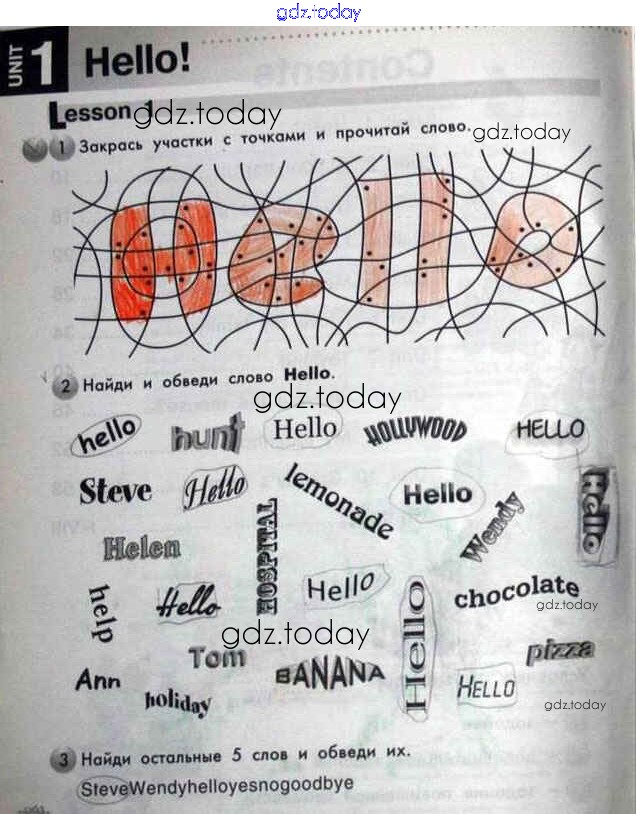 gdz.today
UNIT 1 Hello!
Lesson 1
gdz.today
1 Закрась участки с точками и прочитай слово.
gdz.today
Hello
2 Найди и обведи слово Hello.
gdz.today
hello hunt Hello HOLLYWOOD HELLO
Steve Hello lemonade Hello Wendy Hello
Helen HOSPITAL
help Hello Hello Hello chocolate
gdz.today
gdz.today
Tom BANANA pizza
Ann holiday HELLO
gdz.today
3 Найди остальные 5 слов и обведи их.
SteveWendyhelloyesnogoodbye